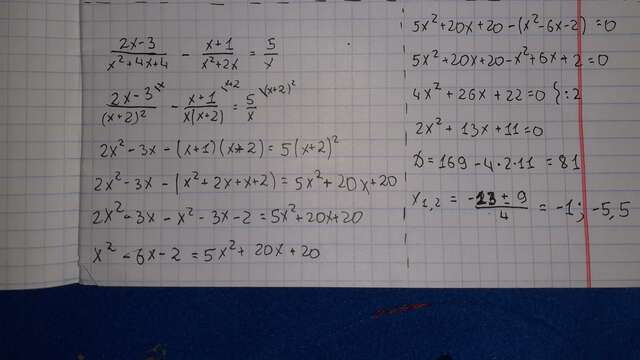 (2x-3)/(x²+4x+4) - (x+1)/(x²+2x) = 5/x
(2x-3)/(x+2)² \x - (x+1)/(x(x+2)) \x+2 = 5/x \(x+2)²
2x²-3x-(x+1)(x+2)=5(x+2)²
2x²-3x-(x²+2x+x+2)=5x²+20x+20
2x²-3x-x²-3x-2=5x²+20x+20
x²-6x-2=5x²+20x+20
5x²+20x+20-(x²-6x-2)=0
5x²+20x+20-x²+6x+2=0
4x²+26x+22=0 }:2
2x²+13x+11=0
D=169-4·2·11=81
x₁,₂ = (-13±9)/4 = -1; -5,5